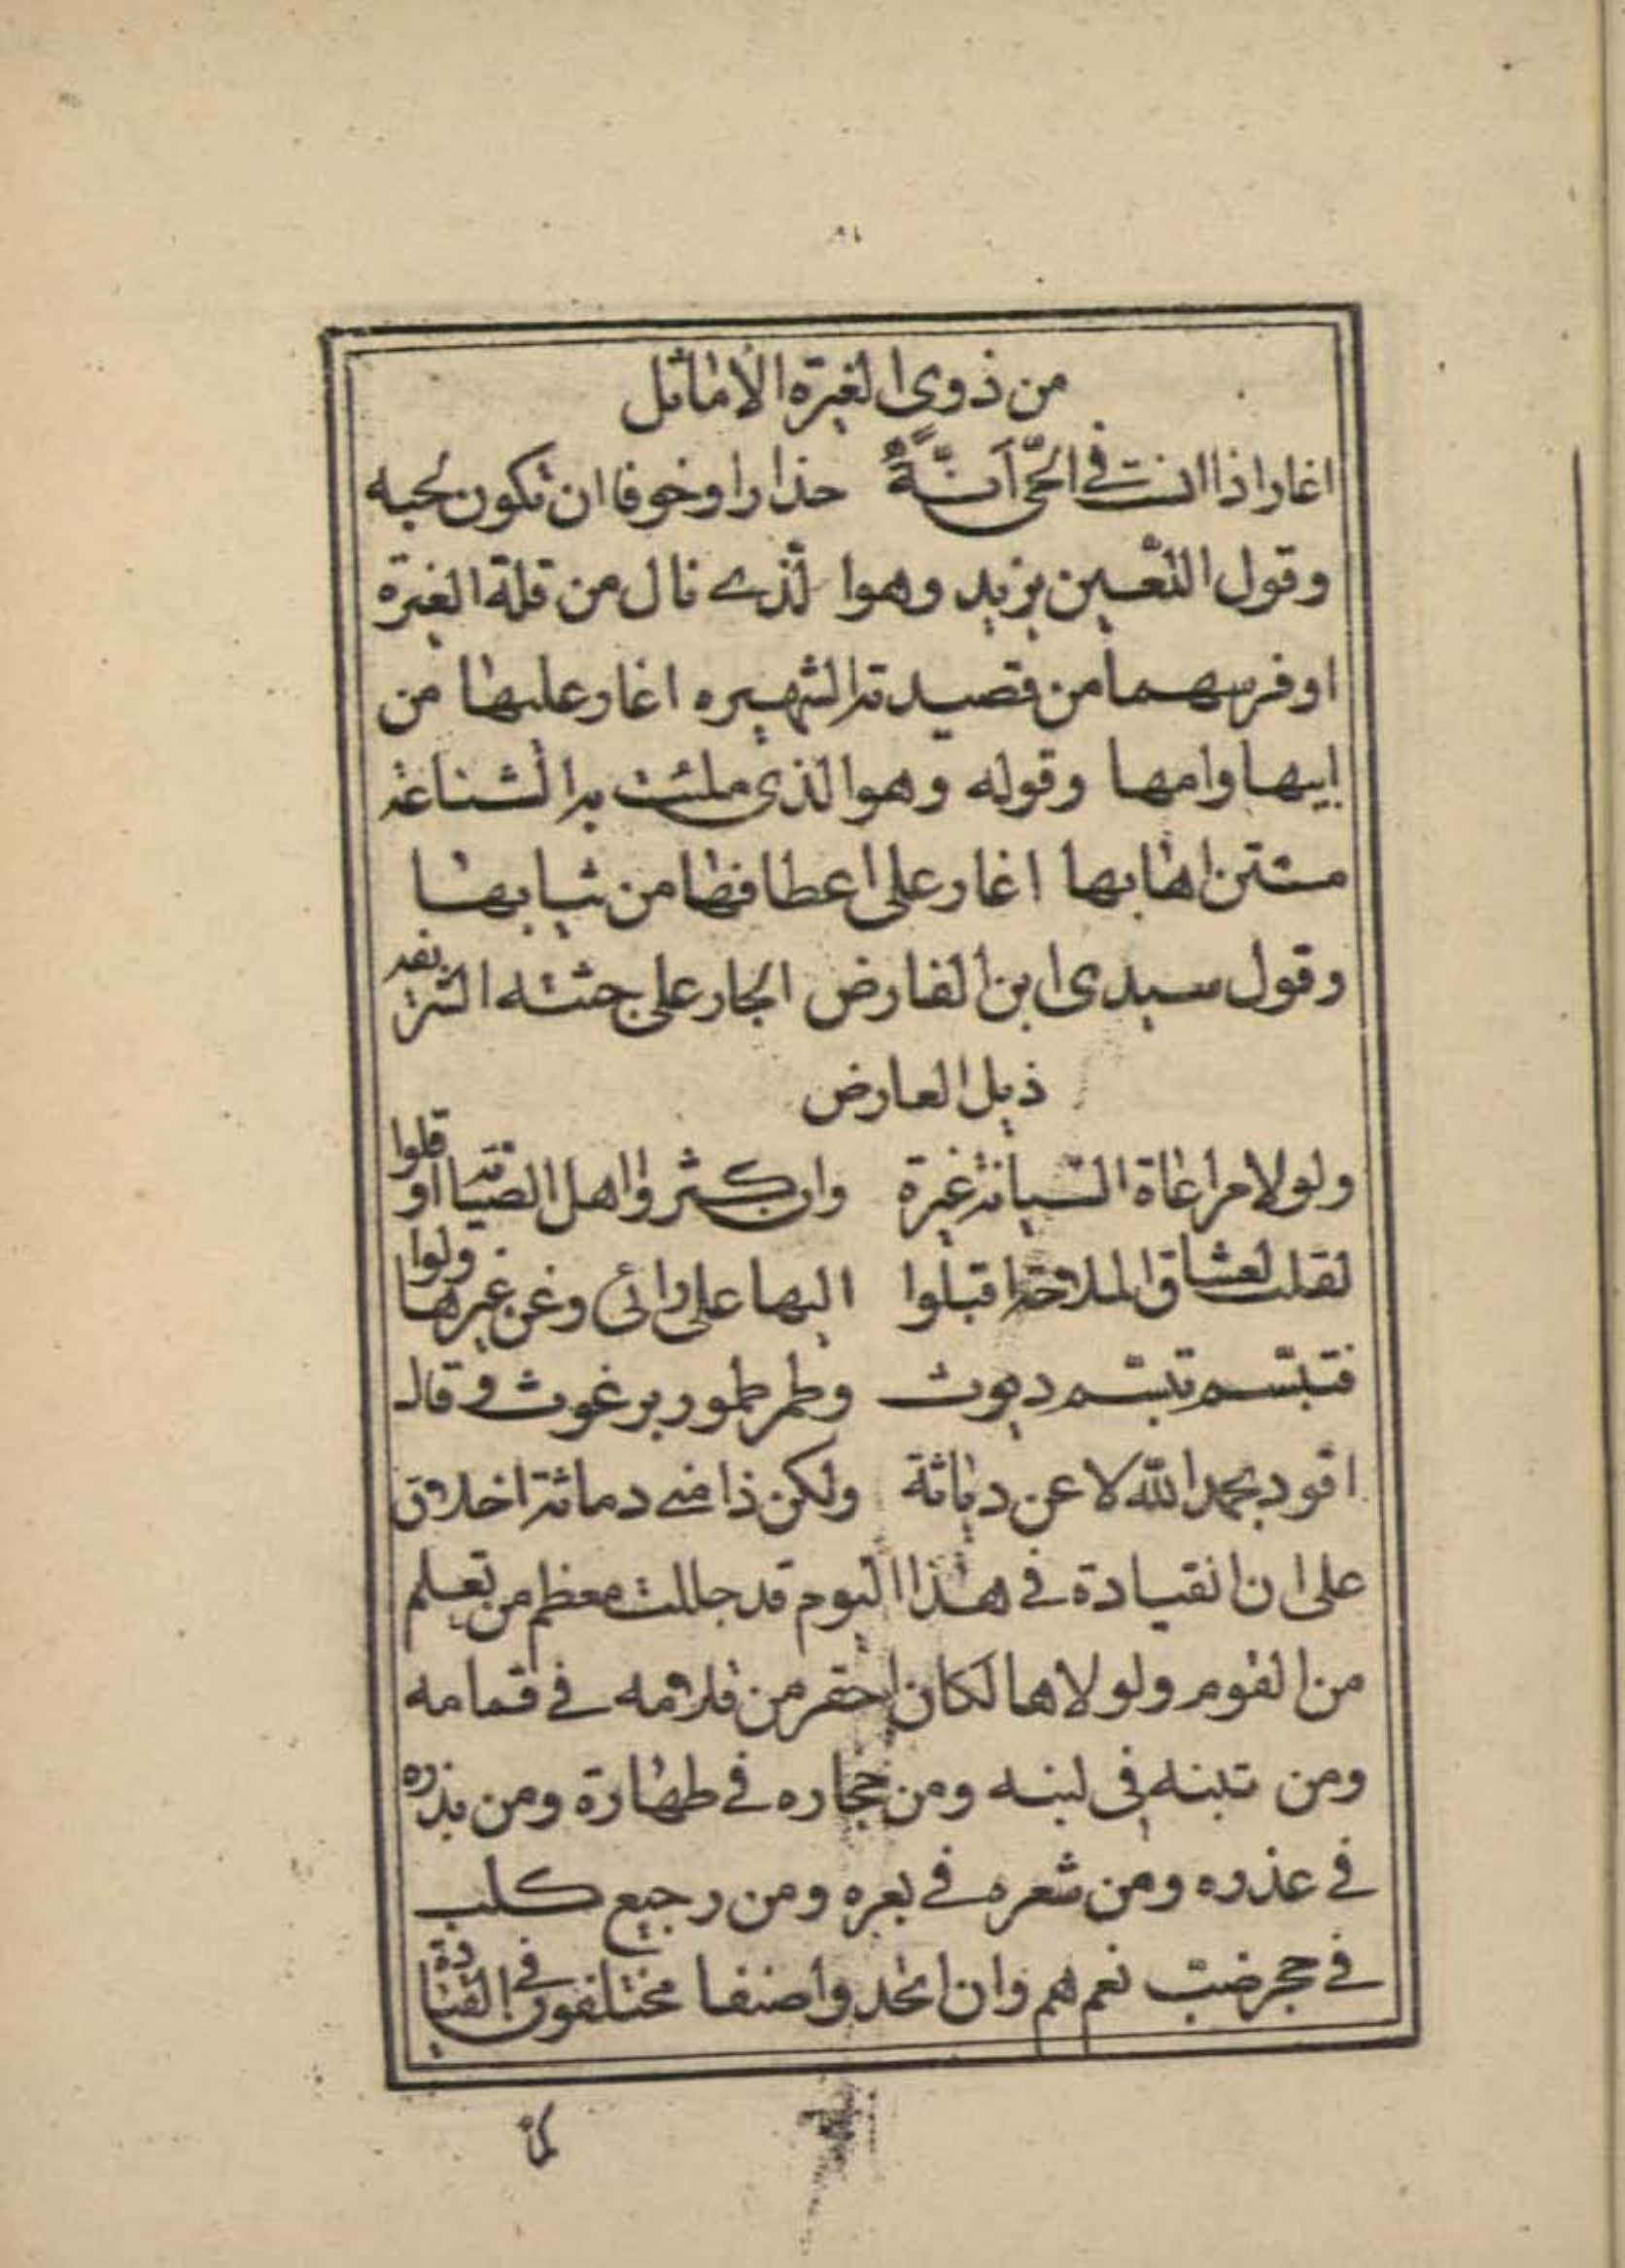 ٨١
من ذوى الغيرة الاماثل
اغار اذا انت في الحي انّةً حذارا وخوفا ان تكون لحبه
وقول اللعين يزيد وهوا لّذى نال من قلة الغيرة
اوفر سهما من قصيدته الشهيره اغار عليها من
ابيها وامها وقوله وهوا لذى ملئت به الشناعة
مستن اهابها اغار على اعطافها من ثيابها
وقول سيدى ابن الفارض الجار على جثته الشريفه
ذيل العارض
ولولا مراعاة الصيانة غيرة وان كثروا اهل الصبابة او قلوا
لقلت لعشاق الملاحة اقبلوا اليها على رائى وعن غيرها ولوا
فتبسّم تبسّم ديوث وطمر طمور برغوث وقال
اقود بحمد الله لا عن دياثة ولكن ذا فى دماثة اخلاق
على ان القيادة في هذا اليوم قد جللت معظم من تعلم
من القوم ولولاها لكان احقر من قلامه في قمامه
ومن تبنه في لبنه ومن حجاره في طهارة ومن بذره
في عذره ومن شعره في بعره ومن رجيع كلب
في حجر ضب نعم هم وان اتحدوا صنفا مختلفون في القيادة